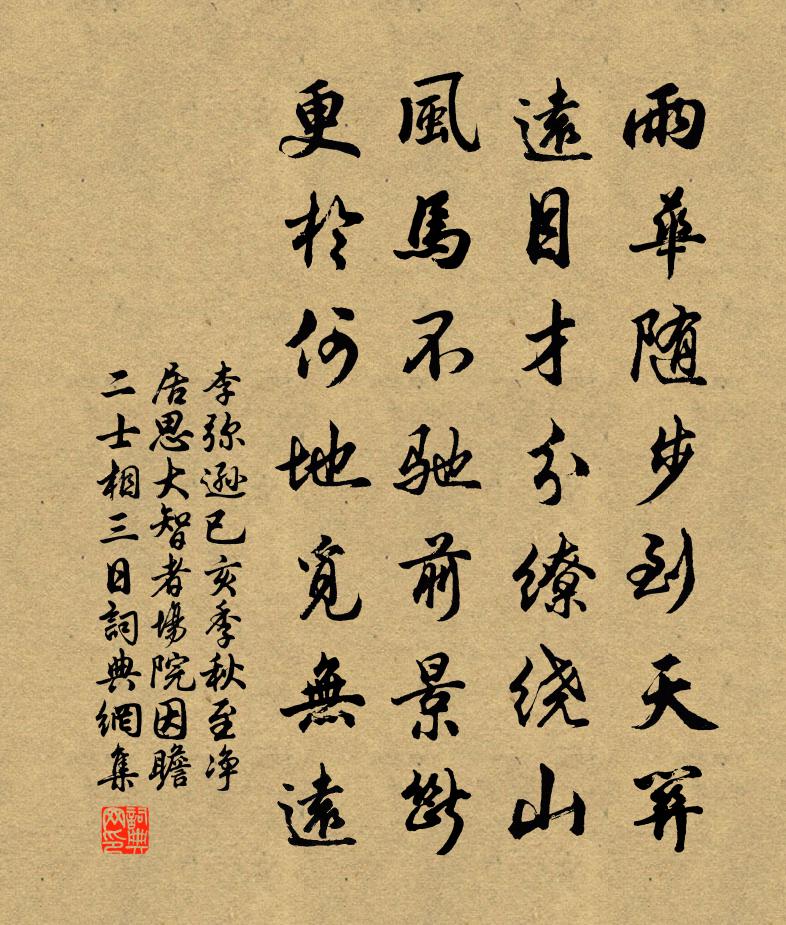 雨華随步到天關
遠目才分繚繞山
風馬不馳前景斷
更於何地覓無遠
李弥遜己亥季秋至净
居思大智者場院因瞻
二士相三日詞典網集
詞典
网印